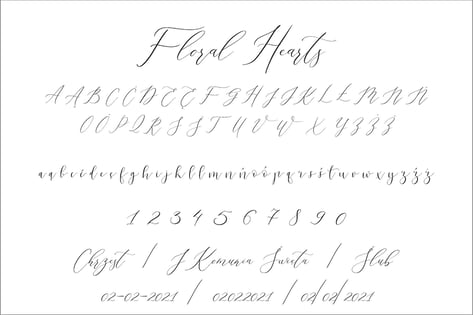 Floral Hearts
A Ą B C Ć D E Ę F G H I J K L Ł M N Ń
O Ó P Q R S Ś T U V W X Y Z Ź Ż
a ą b c ć d e ę f g h i j k l ł m n ń o ó p q r s ś t u v w x y z ź ż
1 2 3 4 5 6 7 8 9 0
Chrzest / I Komunia Święta / Ślub
02-02-2021 / 02022021 / 02/02/2021